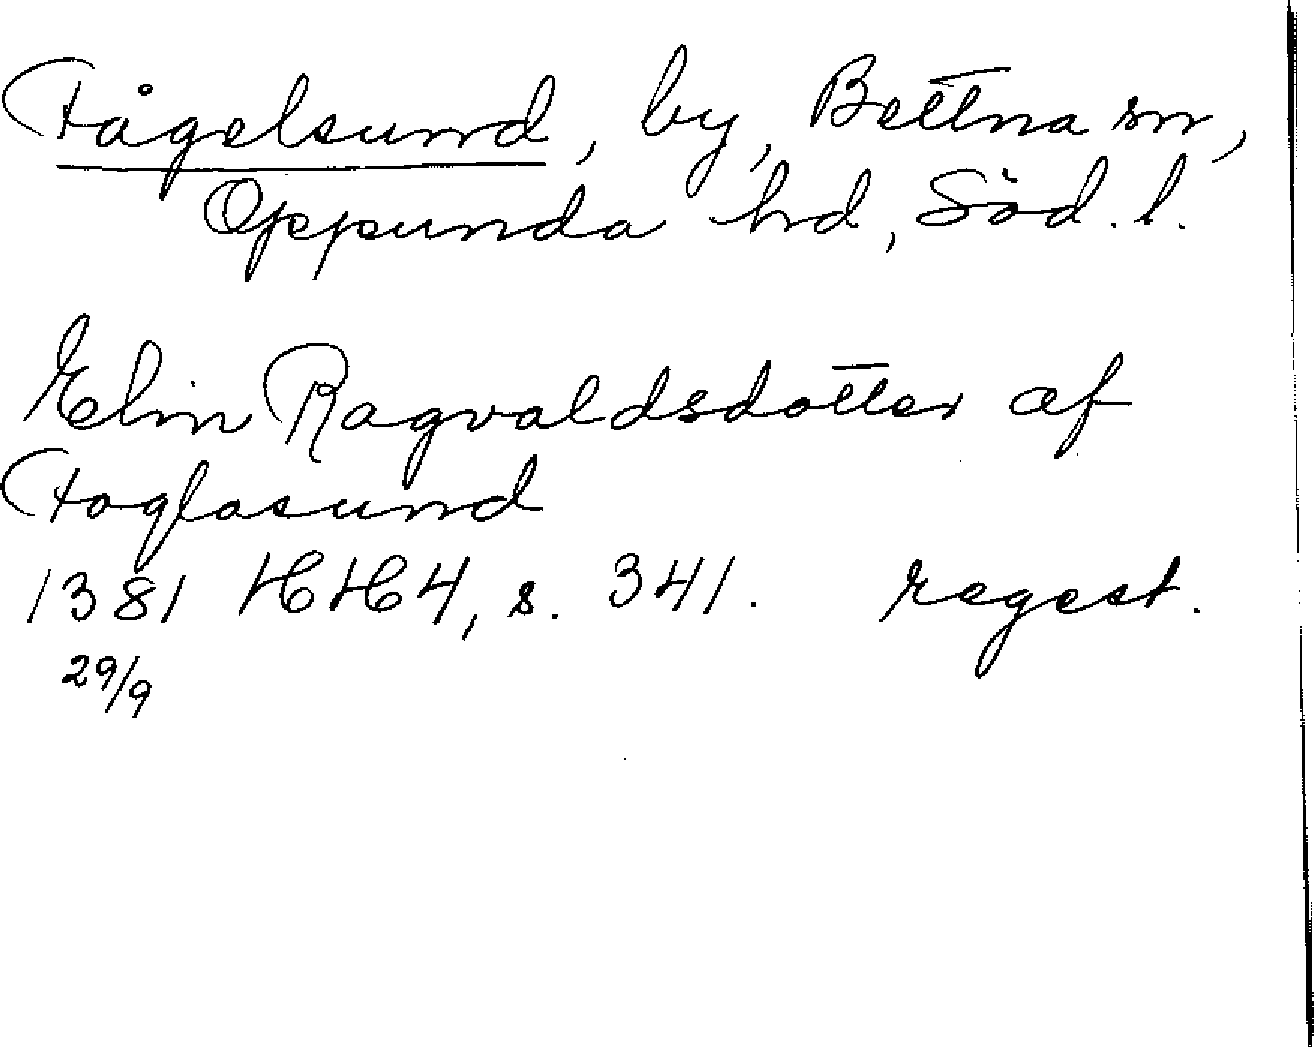 Fågelsund, by, Bettna sn,
Oppunda hd, Söd. l.
Elin Ragvaldsdotter af
Foglasund
1381 HH4, s. 341. regest.
29/9